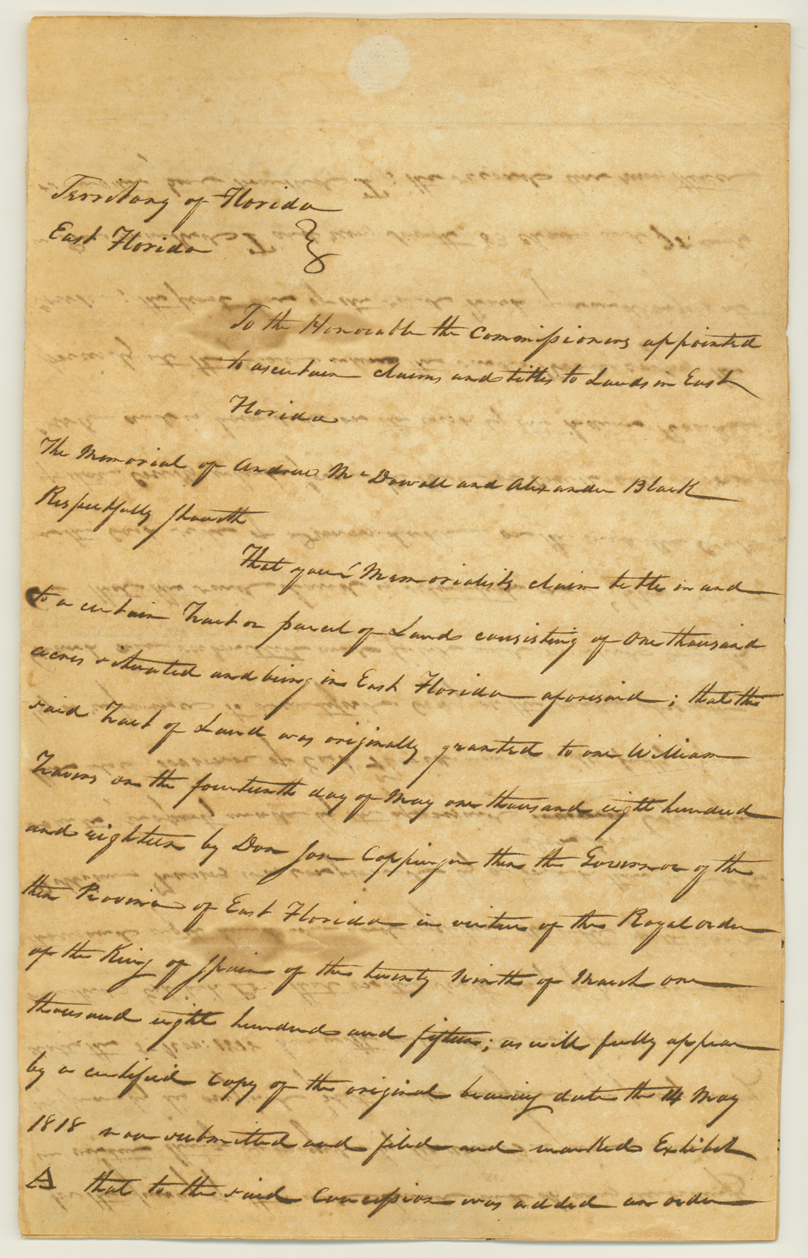 Territory of Florida
East Florida
To the Honorable the Commissioners appointed
to ascertain claims and titles to Lands in East
Florida
The Memorial of Andrew McDowall and Alexander Black
Respectfully Sheweth
That your Memorialists claim title in and
to a certain Tract or parcel of Lands consisting of One thousand
acres situated and being in East Florida aforesaid; that the
said Tract of Land was originally granted to one William
Travers on the fourteenth day of May one thousand eight hundred
and eighteen by Don Jose Coppinger then the Governor of the
then Province of East Florida in virtue of the Royal order
of the King of Spain of the twenty ninth of March one
thousand eight hundred and fifteen; as will fully appear
by a certified Copy of the original bearing date the 14 May
1818 now submitted and filed and marked Exhibit
A that to the said Concession was added an order